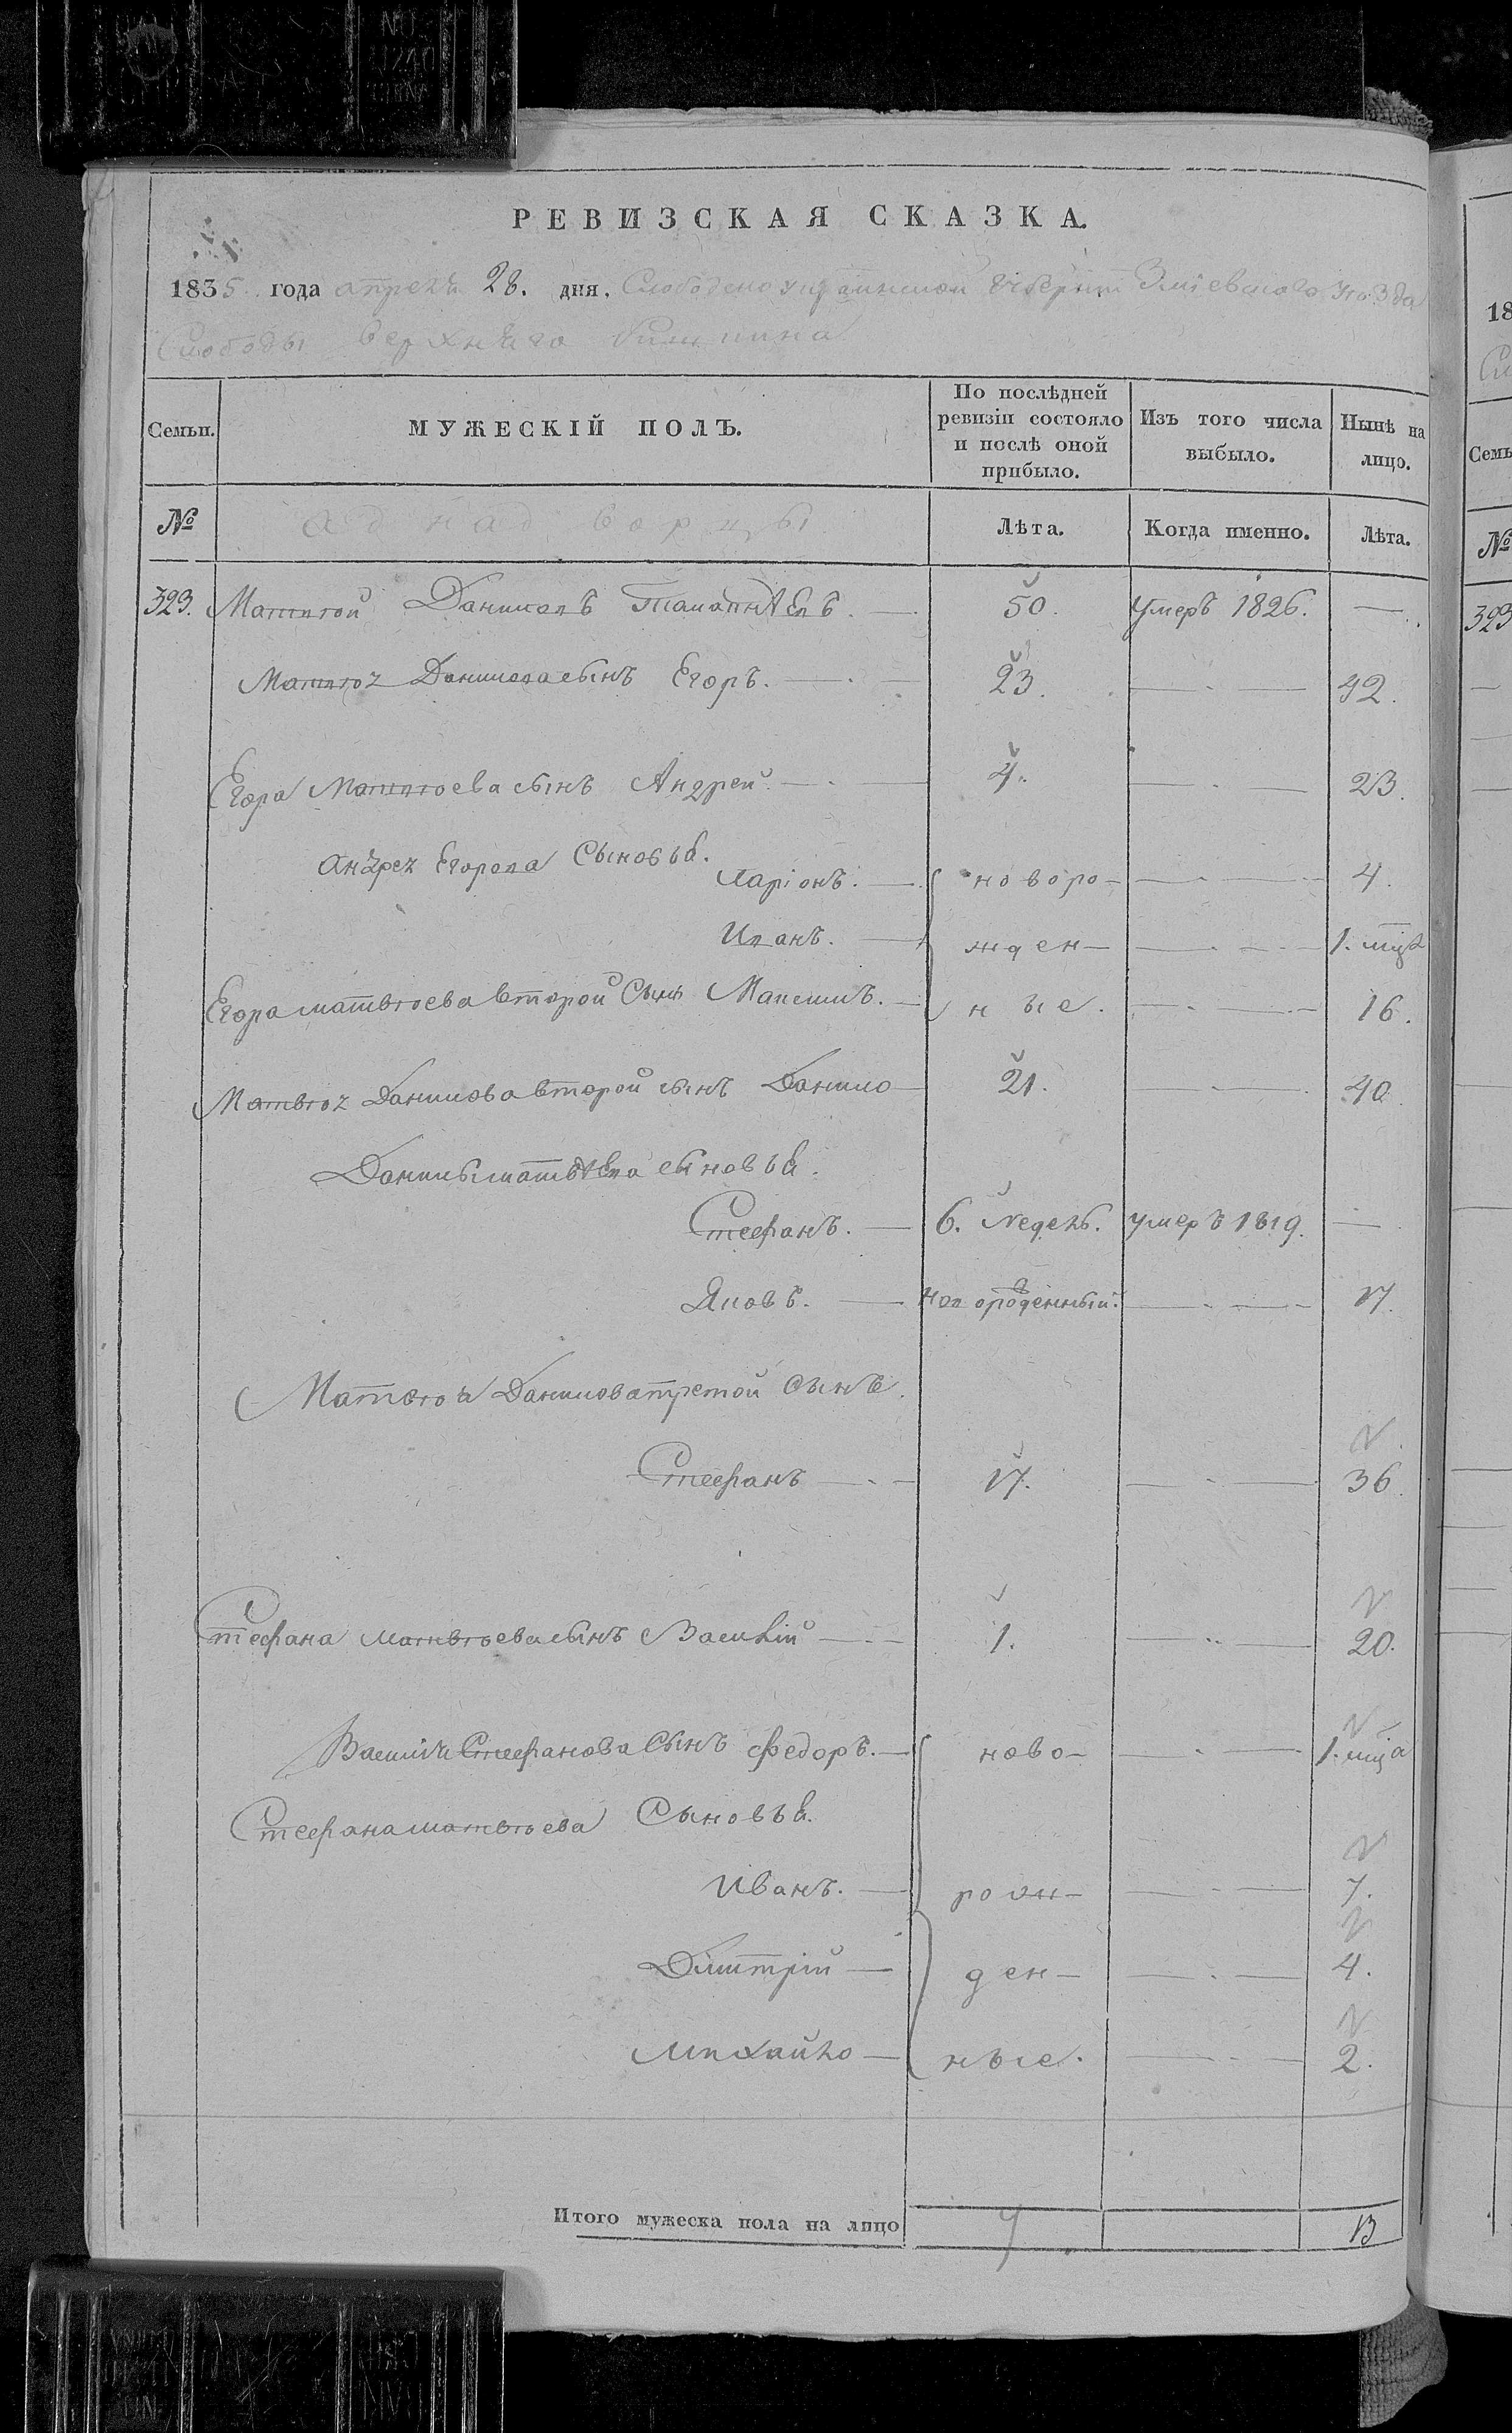 РЕВИЗСКАЯ СКАЗКА.
1835 года апреля 28. дня. Слободско украинской губерніи Зміевскаго уезда
Слободы Верхняго Бишкина
Семьи. МУЖЕСКІЙ ПОЛЪ. По послѣдней ревизіи состояло и послѣ оной прибыло. Изъ того числа выбыло. Нынѣ на лицо.
№ аднадворцы Лѣта. Когда именно. Лѣта.
323. Матвѣй Даниловъ 50. умеръ 1826. —
Матвѣя Данилова сынъ Егоръ. 23. — 42.
Егора Матвѣева сынъ Андрей 4. — 23.
Андрея Егорова Сыновья.
Ларіонъ. новоро- — 4.
Иванъ. жден- — 1. мца
Егора матвѣева второй Сынъ Максимъ. ные. — 16.
Матвѣя Данилова второй сынъ Данило 21. — 40.
Данилы матвѣева сыновья.
Стефанъ. 6. Недель. умеръ 1819. —
Яковъ. новорожденный. — 17.
Матвѣя Данилова третой сынъ.
Стефанъ 17. — 36.
Стефана матвѣева сынъ Василій 1. — 20.
Василія Стефанова Сынъ Федоръ. ново- — 1. мца
Стефана матвѣева Сыновья.
Иванъ. рож- — 7.
Дмитрій ден- — 4.
Михайло ные. — 2.
Итого мужеска пола на лицо 7 13
18
Семь
№
323